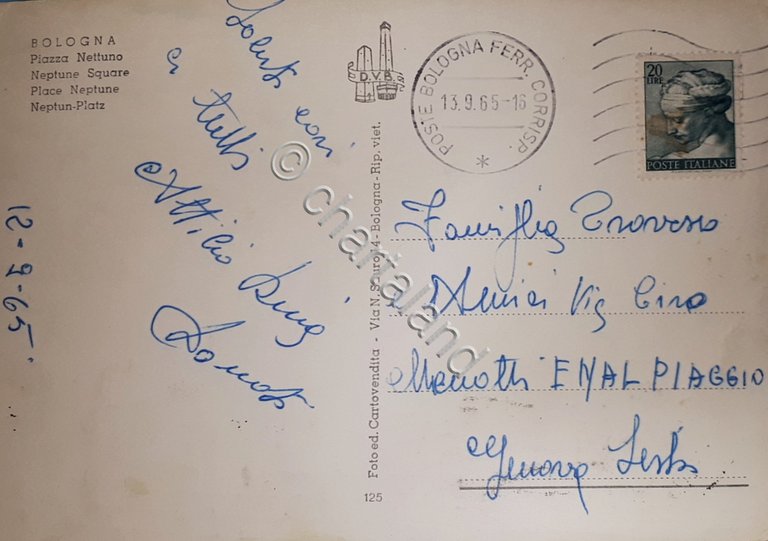 BOLOGNA
Piazza Nettuno
Neptune Square
Place Neptune
Neptun-Platz
Saluti cari
a tutti
Attilio
12-9-65
D.V.B.
Foto ed. Cartovendita - Via N. Sauro 14 - Bologna - Rip. viet.
125
POSTE BOLOGNA FERR. CORRISP.
13.9.65-16
*
20
LIRE
POSTE ITALIANE
Famiglia Traverso
Amici Via Ciro
Menotti ENAL PIAGGIO
Genova Sestri
© chartaland